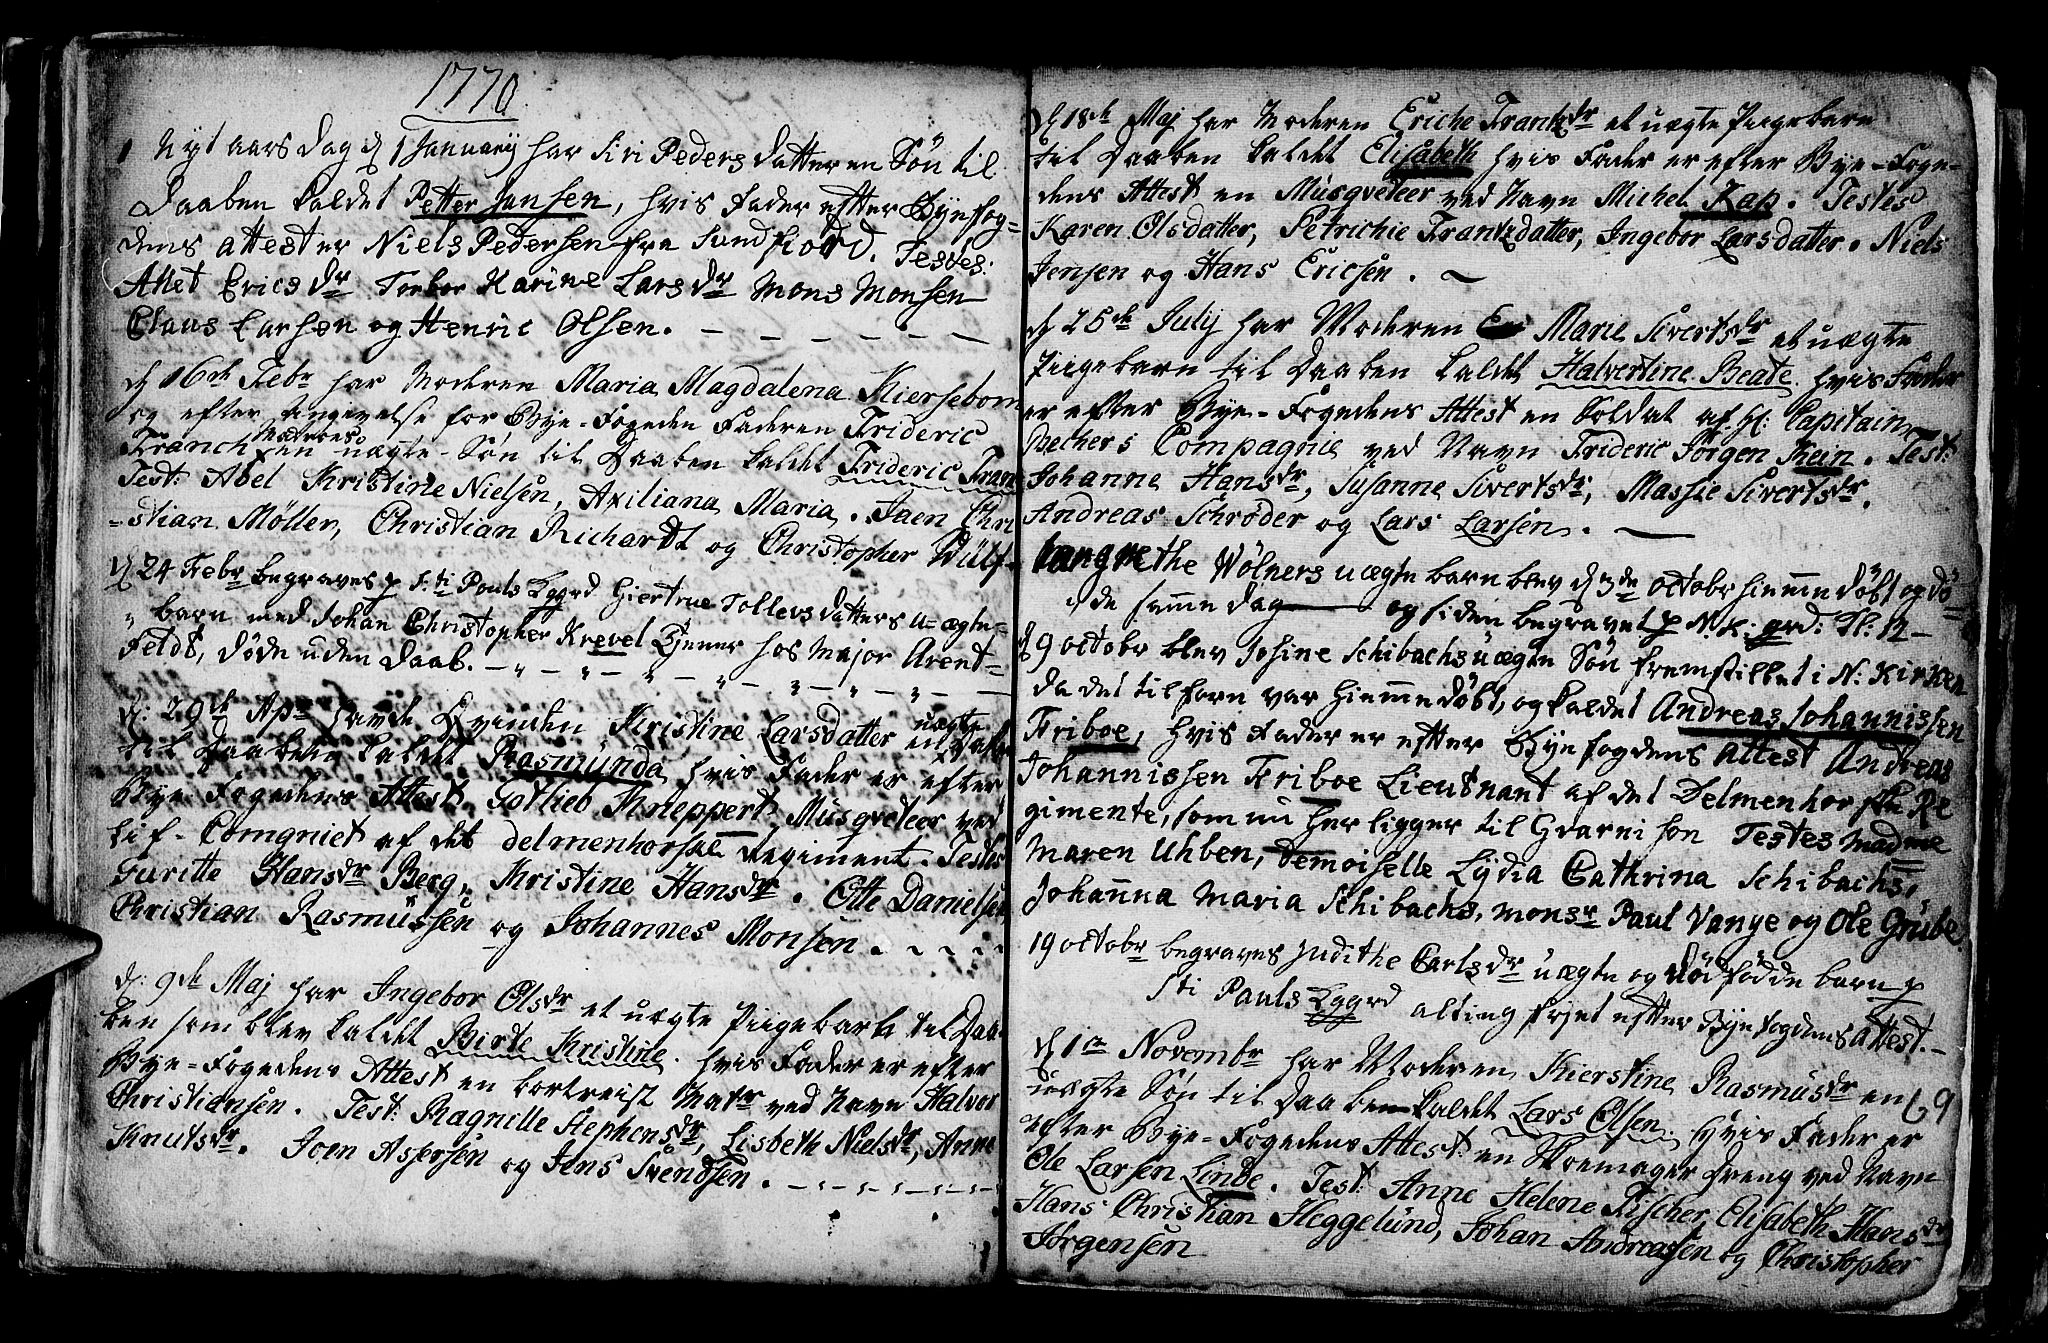 1770
Nyt aars dag d 1 January har Siri Peders datter en Søn til
Daaben kaldet Petter Jansen, hvis Fader efter Byefog=
dens attest er Niels Pedersen fra Sundfiord. Testes:
Allet Erics dr Torbor Karine Lars dr Mons Monsen
Claus Larsen og Henric Olsen.
d 16de Febr har Moderen Maria Magdalena Kiersebom
og efter Angivelse for Bye-Fogeden Faderen Frideric
Franch Matroes en uægte Søn til Daaben kaldet Frideric Fran
Test: Abel Kristine Nielsen, Axiliana Maria. Jaen Chri
-stian Møller, Christian Richardt og Christopher Wülf.
d 24 Febr begraves p S.ti Pouls Kgrd Giertrue Tollevs datters u-ægte-
barn med Johan Christopher Krevel Tjener hos Major Arent-
Feldt, døde uden Daab.
d: 29de Apr havde Qvinden Kristine Larsdatter en uægte datter
til Daaben kaldet Rasmünda hvis Fader er efter
Bye-Fogedens Attest Gotlieb Kneppert, Musqveteer ved
Lif-Compgniet af det delmenhorske Regiment. Testes
Guritte Hansdr Berg, Kristine Hansdr. Otte Danielsen
Christian Rasmüssen og Johannes Monsen.
d: 9de Maj har Ingebor Olsdr et uægte Piigebarn til Daa-
ben som blev kaldet Birte Kristine. hvis Fader er efter
Bye-Fogedens Attest en bortreist Matr ved Navn Halvor
Christiansen. Test: Ragnille Stephensdr, Lisbeth Nielsdr, Anne
Knutsdr. Joen Assersen og Jens Svendsen.
d 18de Maj har Moderen Eriche Frantzdr et uægte Piigebarn
til Daaben kaldet Elisabeth hvis Fader er efter Bye-Foge-
dens Attest en Musqveteer ved Navn Michel Kap. Testes
Karen Olsdatter, Petrichie Frantzdatter, Ingebor Larsdatter. Niels
Jensen og Hans Ericsen.
d 25de Julij har Moderen Marie Sivertsdr et uægte
Piigebarn til Daaben kaldet Halvertine Beate. hvis Fader
er efter Bye-Fogedens Attest en Soldat af H: Capitain
Bechers Compagnie ved Navn Frideric Jørgen Kein. Test:
Johanne Hansdr, Susanne Sivertsdr, Massie Sivertsdr.
Andreas Schrøder og Lars Larsen.
Wølners uægte barn blev d 3de octobr hiemme døbt og dø-
de samme dag og siden begravet p N. K: grd: Fl: 12
d 9 octobr blev Johine Schibachs uægte Søn fremstillet i N: Kirken
da det tilforn var hiemme døbt, og kaldet Andreas Johannissen
Friboe, hvis Fader er efter Bye fogdens attest Andreas
Johannissen Friboe Lieutnant af det Delmenhorske Re
gimente, som nu her ligger til Gvarnison Testes Madme
Maren Uhben, Demoiselle Lydia Cathrina Schibachs,
Johanna Maria Schibachs, Monsr Paul Vange og Ole Grübe
19 octobr begraves Judithe Carlsdr uægte og dødfødde barn p
Sti Pauls Kggrd alting frjet efter Byefogdens attest.
d 1te Novembr har Moderen Kierstine Rasmusdr en
uægte Søn til Daaben kaldet Lars Olsen. Hvis Fader er
69
efter Bye-Fogedens Attest: en Skoemager dreng ved Navn
Ole Larsen Linde. Test: Anne Helene Fischer, Elisabeth Hansdr
Hans Christian Heggelund, Johan Andreassen og Christopher
Jørgensen